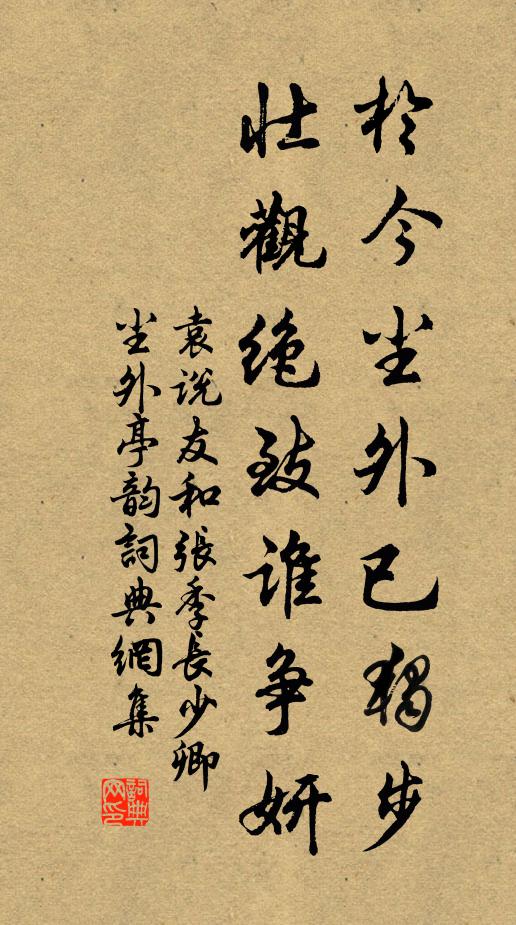 於今尘外已独步
壮觀绝致谁争妍
袁说友和張季長少卿
尘外亭韵詞典網集
詞典网印